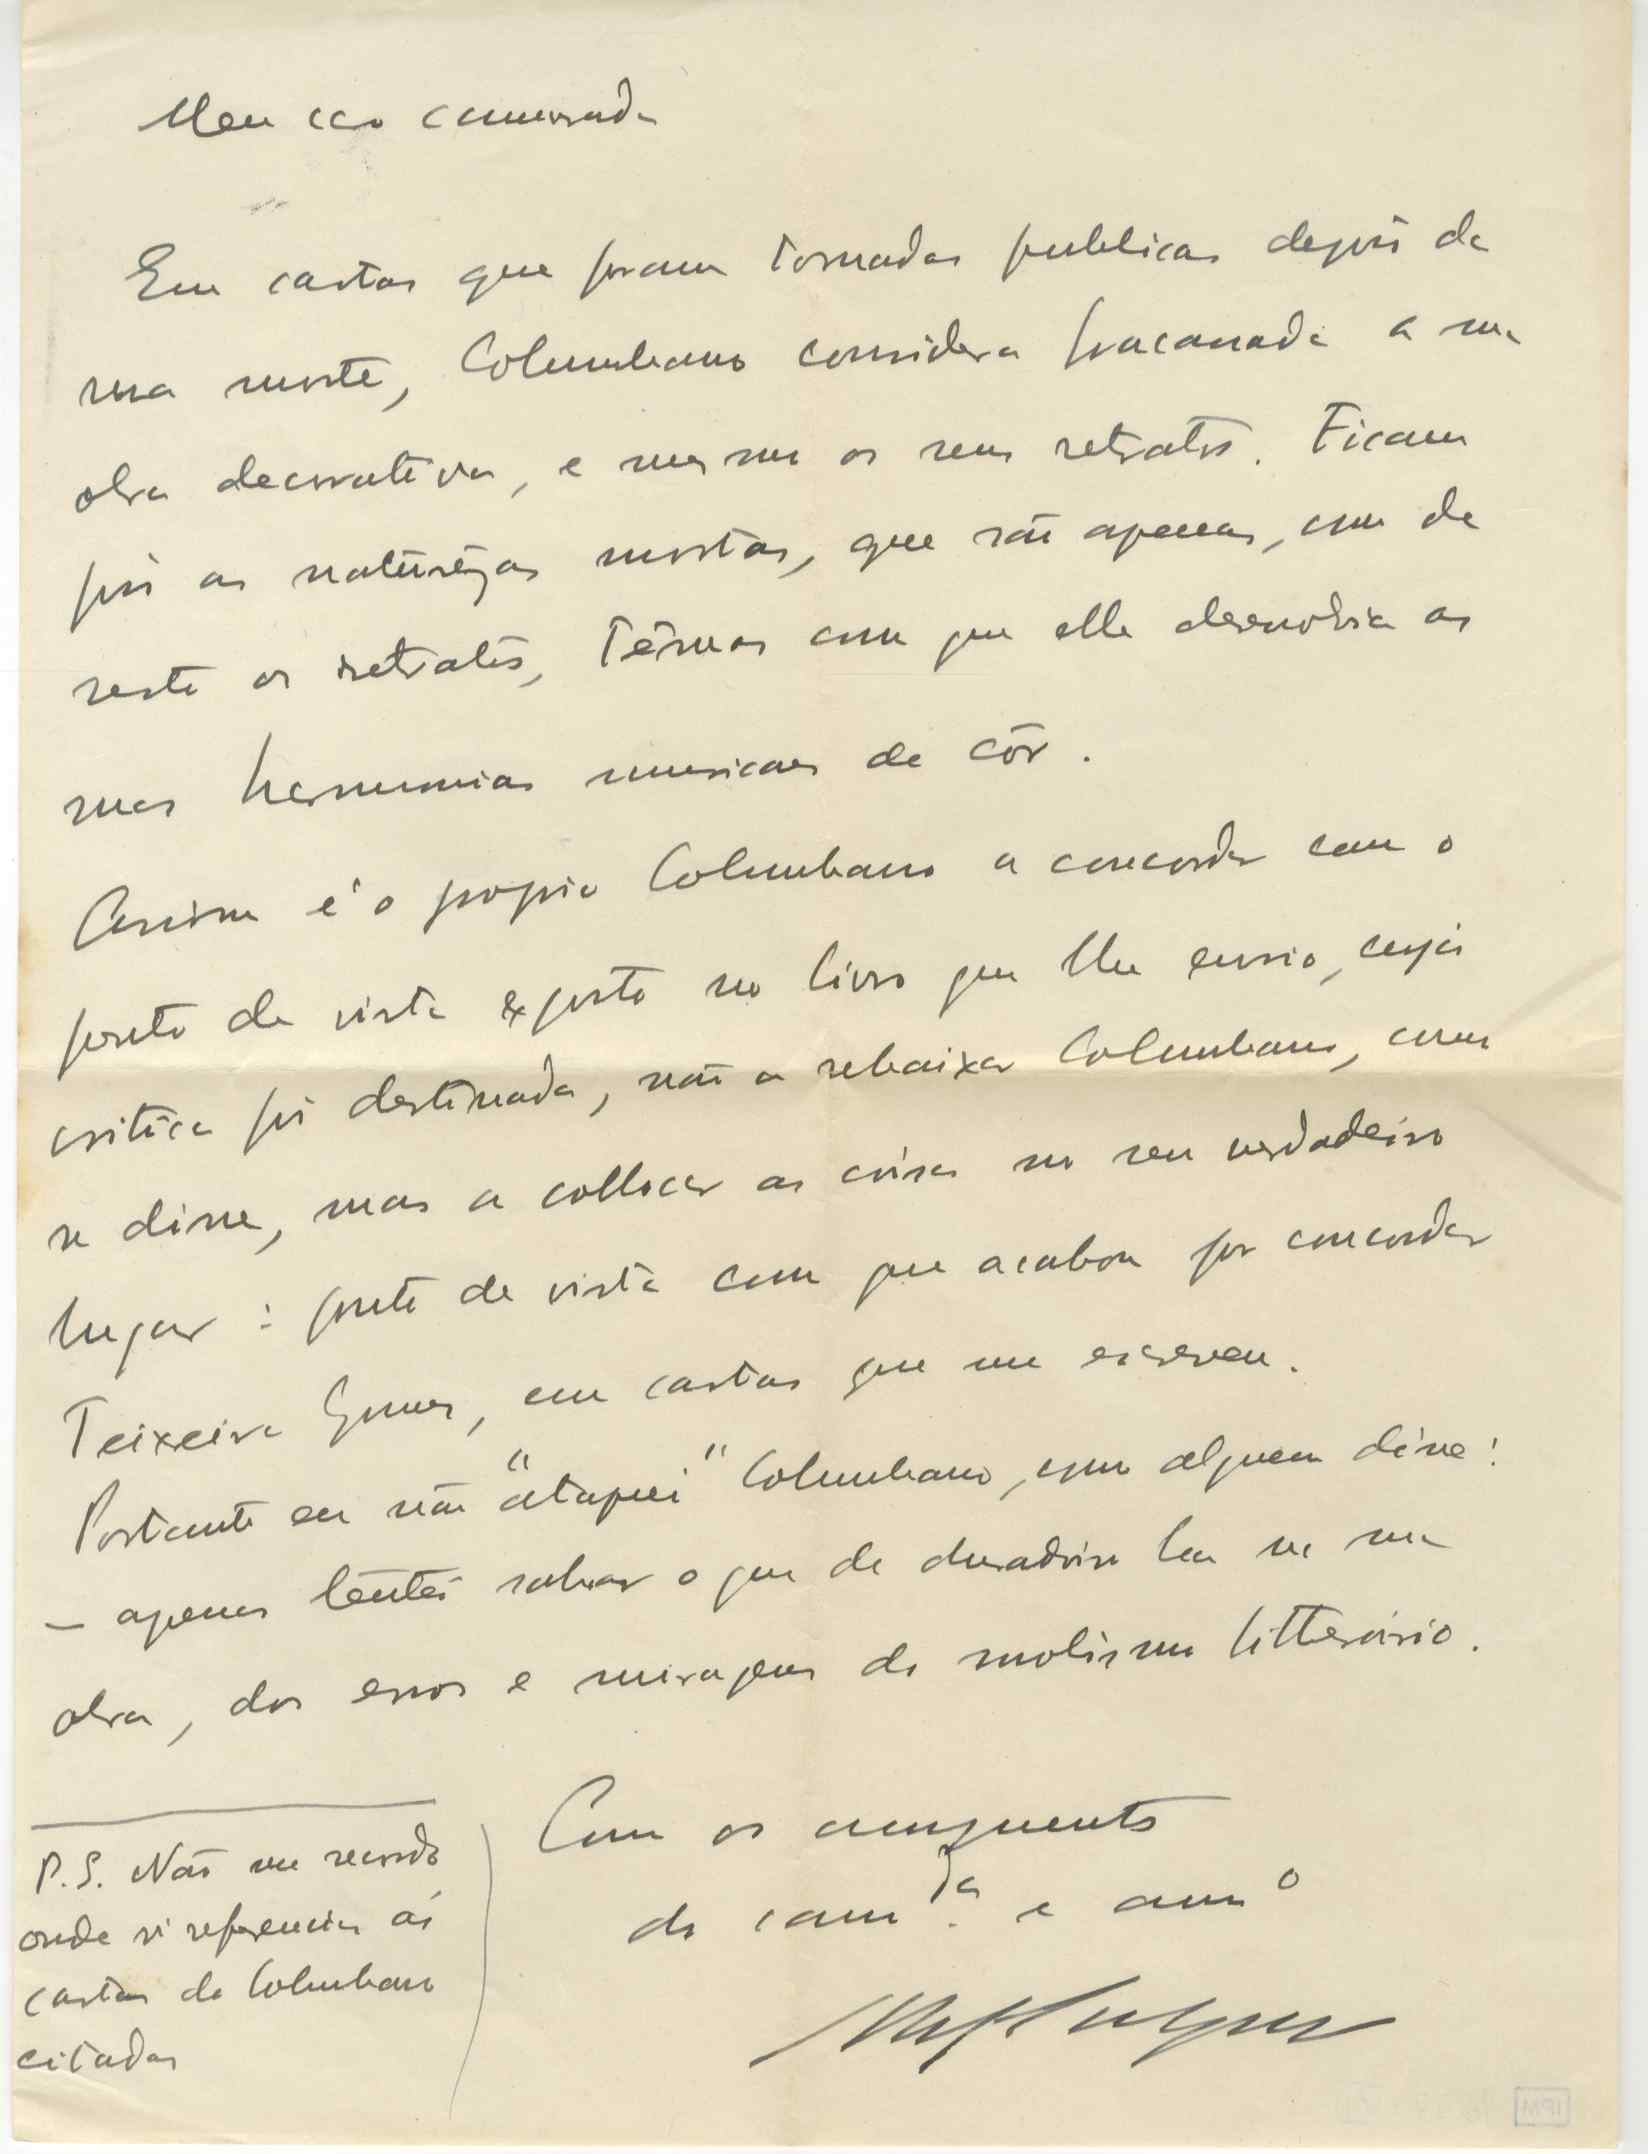 Meu caro camarada
Em cartas que foram tornadas publicas depois da
sua morte, Columbano considera fracassada a sua
obra decorativa, e mesmo os seus retratos. Ficam
pois as naturêzas mortas, que são apenas, com de
resto os retratos, têmas com que elle desenvolvia as
suas harmonias musicaes de côr.
Assim é o proprio Columbano a concordar com o
ponto de vista exposto no livro que lhe envio, cuja
critica foi destinada, não a rebaixar Columbano, como
se disse, mas a collocar as coisas no seu verdadeiro
lugar: ponto de vista com que acabou por concordar
Teixeira Gomes, em cartas que me escreveu.
Portanto eu não "ataquei" Columbano, como alguem disse:
– apenas tentei salvar o que de duradoiro ha na sua
obra, dos erros e miragens do snobismo litterário.
Com os cumprimentos
do cam.da e am.o
P.S. Não me recordo
onde vi referencias ás
cartas de Columbano
citadas
IPM